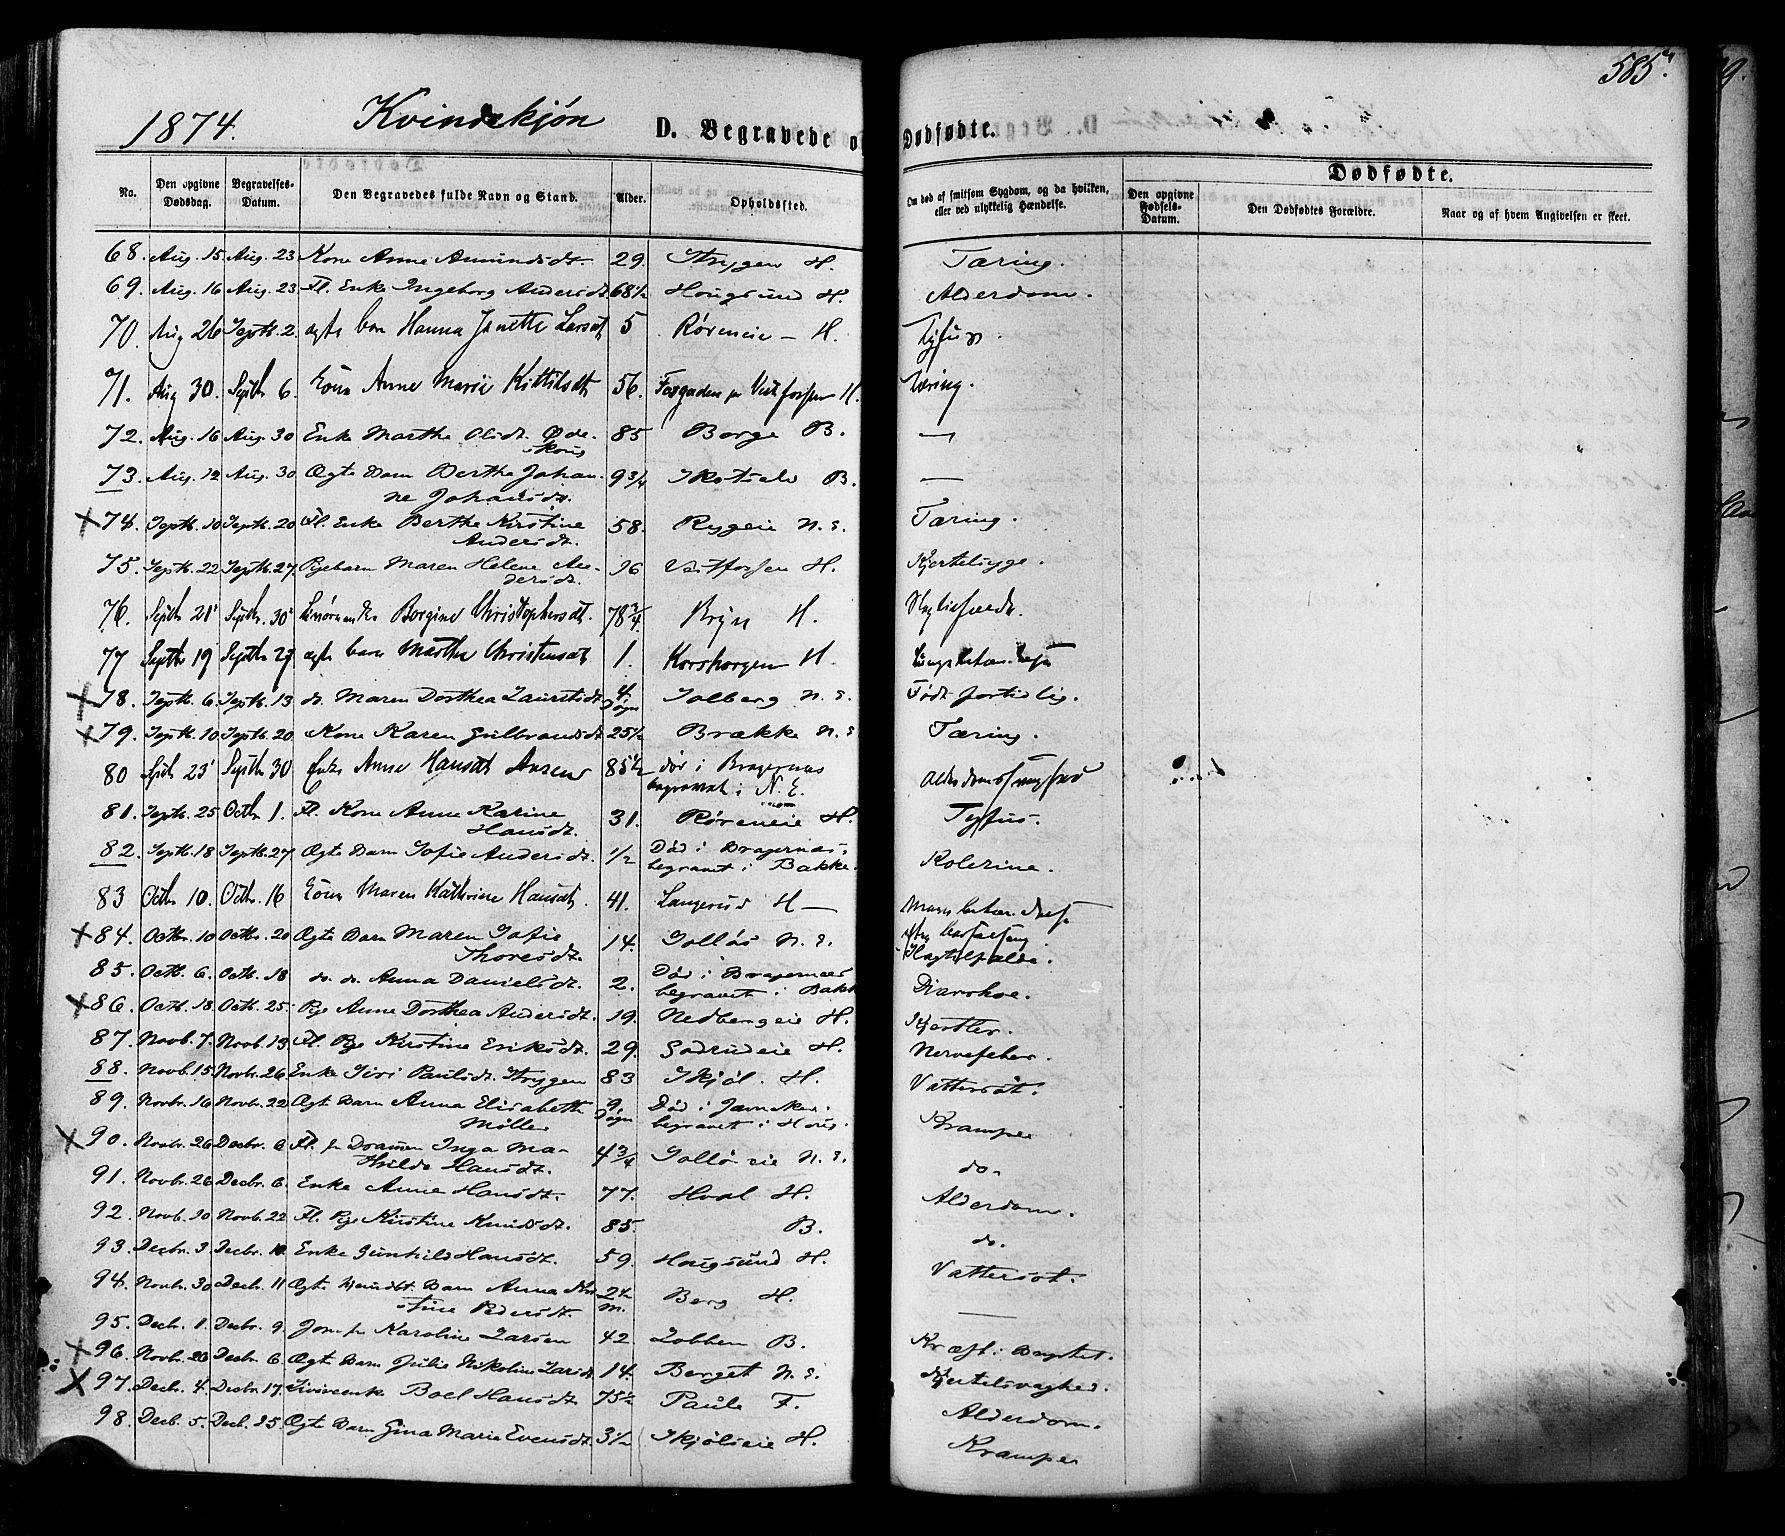 585.
1874. Kvindekjøn D. Begravede o
Dødfødte.
No. Den opgivne Dødsdag. Begravelses-Datum. Den Begravedes fulde Navn og Stand. Alder. Opholdssted. Om død af smitsom Sygdom, og da hvilken, eller ved ulykkelig Hændelse. Den opgivne Fødsels-Datum. Den Dødfødtes Forældre. Naar og af hvem Angivelsen er skeet.
Dødfødte.
68. Aug. 15 Aug. 23 Kone Anne Amundsdt. 29. Strygen H. Tæring.
69. Aug. 16 Aug. 23 Fl. Enke Ingeborg Andersdt. 68 1/2 Hougsund H. Alderdom.
70. Aug 26 Septb. 2. ægte barn Hanna Janette Larsdt 5 Røreneie — H. Tyfus.
71. Aug 30. Septbr 6. Kone Anne Marie Kittilsdt 56. Vestfossen H. Tæring.
72. Aug. 16 Aug. 30 Enke Marthe Olsdt. Øde-
skoug 85 Borge B. —
73. Aug. 12 Aug. 30 Ægte Barn Berthe Johan-
ne Johansdt. 9 3/4 Skotselv B. —
74. Septb. 10 Septb. 20 Fl. Enke Berthe Kirstine
Andersdt. 58. Rygeie N. E. Tæring.
75. Septb. 22 Septb. 27. Pigebarn Maren Helene An-
dersdt. 16 Vestfossen H. Kjertelsyge.
76. Septbr 21 Septbr. 30 Borgine Christophersdt. 78 3/4. Bryn H. Slagtilfælde.
77 Septbr 19 Septbr 27 ægte barn Marthe Christensdt 1. Korshaugen H.
78. Septb. 6. Septb. 13 do. Maren Dorthea Lauritsdt. 4 Døgn Solberg N. E. Født fortidlig.
79. Septb. 10 Septb. 20. Kone Karen Gulbrandsdt. 25 1/2 Brække N. E. Tæring.
80 Septbr 23 Septbr 30 Enke Anne Hansdt 85 1/2 død i Bragernæs
begravet i N. E.
81. Septb. 25 Octbr 1. Fl. Kone Anne Karine
Hansdt. 31. Røreneie H. Tyfus.
82. Septb. 18 Septb. 27. Ægte Barn Sofie Andersdt. 1/2 Død i Bragernæs,
begravet i Bakke. Kolerine.
83 Octbr 10. Octbr. 16 Kone Maren Kathrine Hansdt. 41. Langerud H —
84. Octb. 10 Octb. 20 Ægte Barn Maren Sofie
Thoresdt. 14. Solløs N. E. Slagtilfælde.
85. Octb. 6. Octb. 18 do. do. Anna Danielsdt. 2. Død i Bragernæs
begravet i Bakk Diarrhoe.
86. Octb. 18. Octb. 25. Pge Anne Dorthea Andersdt. 19. Nedbergeie H. Kjertler.
87. Novb. 7. Novb. 13 Fl. Pge Kirstine Eriksdt. 29. Sadrudeie H. Nervefeber.
88. Novb. 15 Novbr. 26 Enke Siri Paulsdt. Strygen 83 Skjøl. H. Vattersot.
89. Novbr. 16 Novbr. 22 Ægt. Barn Anna Elisabeth
Møller 9 Døgn Død i
begravet i Houg. Krampe
90. Novbr. 26 Decbr. 6 Inga Ma-
thilde Hansdt. 4 3/4 Solløeie N. E. do.
91. Novbr. 26 Decbr. 6. Enke Anne Hansdt. 77. Hval H. Alderdom.
92. Novb. 10 Novb. 22 Fl. Pge Kirstine Knudsdt. 85. B. do.
93. Decbr. 3. Decbr. 10. Enke Gunhild Hansdt. 59. Hougsund H. Vattersot.
94. Novbr. 30 Decb. 11 Ægt Barn Anna Kri
stine Pedersdt. 2 1/2 M. Berg H. —
95. Decb. 1. Decbr. 9. Karoline Larsen 42. Lobben B. Kræft i Brystet.
96. Novbr. 26 Decbr. 6. Ægt Barn Julie Nikoline Larsdt 14. Berget N. E. Kjertelsvaghed.
97. Decb. 4. Decbr. 17. Boel Hansdt. 75 1/2 Paule F. Alderdom.
98. Decb. 5. Decb. 25. Ægte Barn Gina Marie Evensdt. 3 1/2 Skjølseie H. Krampe